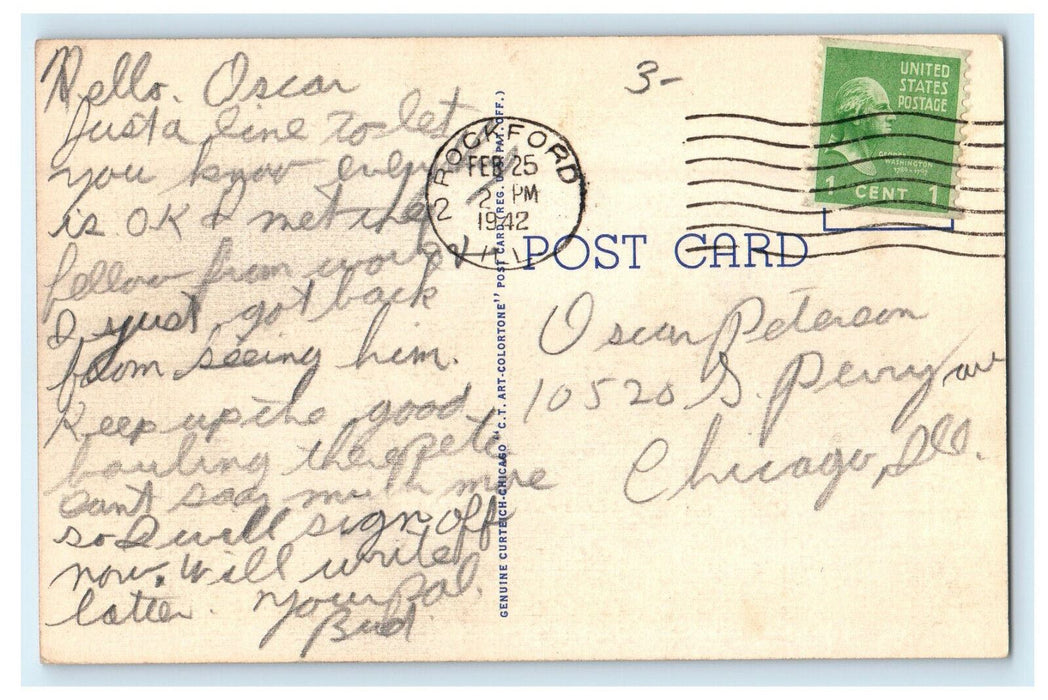 Hello. Oscar
Just a line to let
you know
is OK & met the
fellow from work
I just got back
from seeing him.
Keep up the good
bauling there Pete
cant say much more
so I will sign off
now. Will write
later. Your Pal.
Bud.
GENUINE CURTEICH-CHICAGO "C.T. ART-COLORTONE" POST CARD (REG. U.S. PAT. OFF.)
3-
2 ROCKFORD
FEB 25
2 PM
1942
ILL
UNITED
STATES
POSTAGE
GEORGE
WASHINGTON
1789-1797
1 CENT 1
POST CARD
Oscar Peterson
10520 S. Perry av
Chicago, Ill.